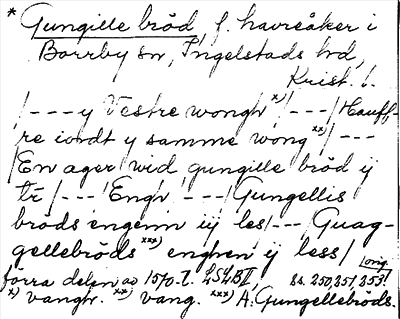 * Gungille bröd f. havreåker i
Borrby sn, Ingelstads hd,
Krist. l.
/---y Vestre wongh x)/---/Hauff-
re iordt y samme wong xx)/---
/En ager wid gungille bröd ij
tr/---Engh ---/Gungellis
bröds engenn iij les/---/Guag-
gellebröds xxx) enghen ij less/
förra delen av 1570-t. LSLB II, ss. 250, 251, 353! Long.
x) vangh. xx) vang. xxx) A. Gungellebröds.